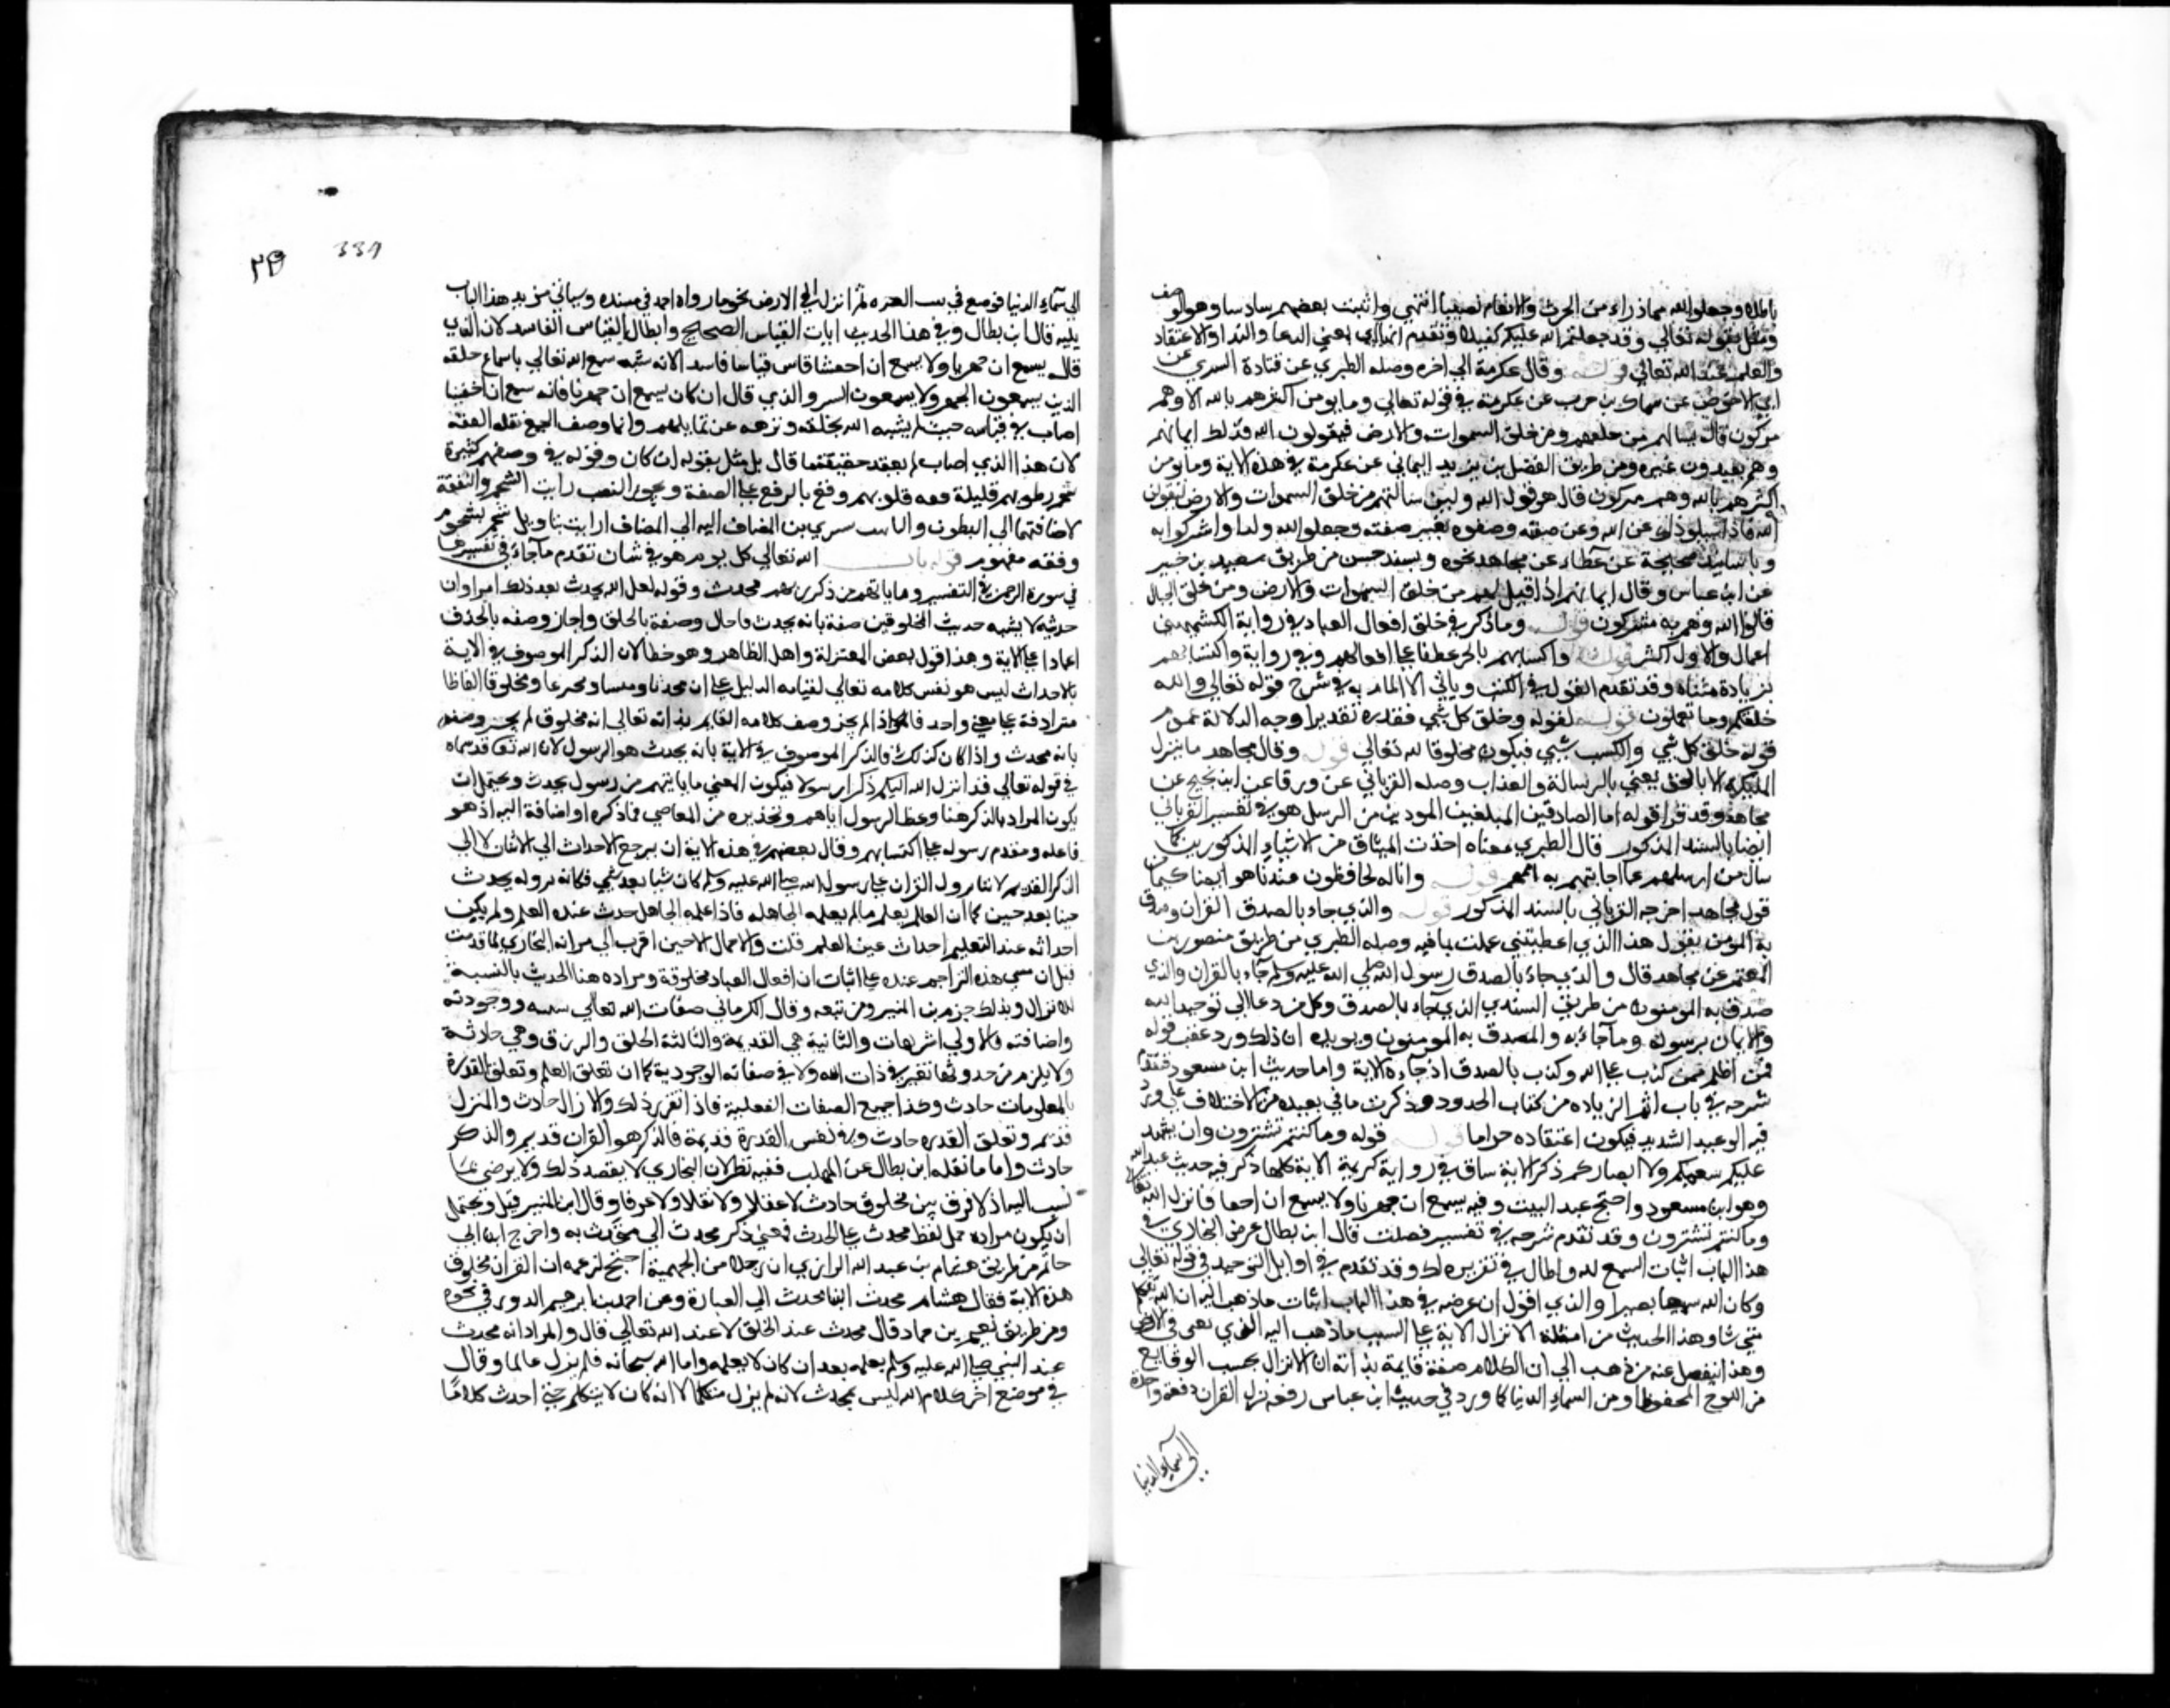 باناه وجعلوا لله مما ذرا من الحرث والانعام نصيبا انتهى واثبت بعضهم سادسا وهو الوصف
ومثل بقوله تعالى وقد جعلتم الله عليكم كفيلا وتقدم اي بمعني الدعا والندا والاعتقاد
والعلم عند الله تعالى قوله وقال عكرمة الى اخره وصله الطبري عن قتادة السري عن
ابي الاحوص عن سماك بن حرب عن عكرمة في قوله تعالى وما يومن اكثرهم بالله الا وهم
مشركون قال يسالهم من خلقهم ومن خلق السموات والارض فيقولون الله فذلك ايمانهم
وهم يعبدون غيره ومن طريق الفضل بن يزيد اليماني عن عكرمة في هذه الاية وما يومن
اكثرهم بالله وهم مشركون قال هو قول الله ولين سالتهم من خلق السموات والارض ليقولن
الله فاذا سيلوا ذلك عن الله وعن صفته وصفوه بغير صفته وجعلوا لله ولدا واشركوا به
وباسانيد صحيحة عن عطاء عن مجاهد نحوه وبسند حسن من طريق سعيد بن جبير
عن ابن عباس وقال ايمانهم اذا قيل لهم من خلق السموات والارض ومن خلق الجبال
قالوا الله وهم به مشركون قوله وما ذكر في خلق افعال العباد في رواية الكشميهني
اعمال والاول اكثر قوله واكسابهم بالجر عطفا على افعالهم وفي رواية واكتسابهم
بزيادة مثناة وقد تقدم القول في الكسب وياتي الالمام به في شرح قوله تعالى والله
خلقكم وما تعملون قوله لقوله وخلق كل شي فقدره تقديرا وجه الدلالة عموم
قوله خلق كل شي والكسب شي فيكون مخلوقا لله تعالى قوله وقال مجاهد ما ينزل
المليكة الا بالحق يعني بالرسالة والعذاب وصله الفريابي عن ورقا عن ابن نجيح عن
مجاهد وقد قرا قوله اما الصادقين المبلغين المودين من الرسل هو في تفسير الفريابي
ايضا بالسند المذكور قال الطبري معناه اخذت الميثاق من الانبياء المذكورين كما
سال من ارسلهم عما اجابتهم به اممهم قوله وانا له لحافظون عندنا هو ايضا كما من
قول مجاهد اخرجه الفريابي بالسند المذكور قوله والذي جاء بالصدق القران وصدق
به المومن يقول هذا الذي اعطيتني عملت بما فيه وصله الطبري من طريق منصور بن
المعتمر عن مجاهد قال والذي جاء بالصدق رسول الله صلى الله عليه وسلم جاء بالقران والذي
صدق به المومنون من طريق السندي الذي جاء بالصدق وكل من دعا الي توحيد الله
والايمان برسوله وما جاء به والمصدق به المومنون ويويده ان ذلك ورد عقب قوله
فمن اظلم ممن كذب على الله وكذب بالصدق اذ جاءه الاية واما حديث ابن مسعود فتقدم
شرحه في باب اثم الزناه من كتاب الحدود وذكرت ماني بعيده من الاختلاف على
فيه الوعيد الشديد فيكون اعتقاده حراما قوله قوله وما كنتم تستترون وان يشهد
عليكم سمعكم ولا ابصاركم ذكر الاية ساق في رواية كريمة الاية كلها ذكر فيه حديث عبد الله
وهو ابن مسعود واجتمع عند البيت وفيه يسمع ان جهرنا ولا يسمع ان اخفينا فانزل الله تعالى
وما كنتم تستترون وقد تقدم شرحه في تفسير فصلت قال ابن بطال غرض البخاري في
هذا الباب اثبات السمع لله واطال في تقرير ذلك وقد تقدم في اوايل التوحيد في قوله تعالى
وكان الله سميعا بصيرا والذي اقول ان غرضه في هذا الباب اثبات ما ذهب اليه ان الله يتكلم
متي شا وهذا الحديث من امثلة الانزال الاية على السبب ما ذهب اليه الذي في الارض
وهذا ينفصل عنه من ذهب الي ان الكلام صفة قايمة بذاته ان الانزال بحسب الوقايع
من اللوح المحفوظ او من السماء الدنيا كما ورد في حديث ابن عباس رفعه نزل القران دفعة واحدة
الى سماء الدنيا
339
الى سماء الدنيا فوضع في بيت العزه ثم انزل الى الارض نجوما رواه احمد في مسنده وسياتي مزيد هذا الباب
يليه قال ابن بطال وفي هذا الحديث اثبات القياس الصحيح وابطال القياس الفاسد لان الذي
قال يسمع ان جهرنا ولا يسمع ان اخفينا قاس قياسا فاسدا لانه شبه سمع الله تعالى باسماع خلقه
الذين يسمعون الجهر ولا يسمعون السر والذي قال ان كان يسمع ان جهرنا فانه سمع ان اخفينا
اصاب في قياسه حيث لم يشبه الله بخلقه ونزهه عن مماثلتهم وانما وصف الجميع بقلة الفقه
لان هذا الذي اصاب لم يعتقد حقيقة ما قال بل مثل بقوله ان كان وقوله في وصفهم كثيرة
شحم بطونهم قليلة فقه قلوبهم وقع بالرفع على الصفة ويجوز النصب رايت الشحم والفقه
لاضافتهما الى البطون والتانيث يسري من المضاف اليه الى المضاف او انث بتاويل شحم بشحوم
وفقه مفهوم قوله باب الله تعالى كل يوم هو في شان تقدم ما جاء في تفسيرها
في سورة الرحمن في التفسير وما ياتيهم من ذكر من ربهم محدث وقوله لعل الله يحدث بعد ذلك امرا وان
حدثه لا يشبه حديث المخلوقين صفة بانه يحدث فاحال وصفه بالخلق واجاز وصفه بالحدث
اعتمادا على الاية وهذا قول بعض المعتزلة واهل الظاهر وهو خطا لان الذكر الموصوف في الاية
بالاحداث ليس هو نفس كلامه تعالى لقيام الدليل على ان محدثا ومنشا ومخترعا ومخلوقا الفاظا
مترادفة على معنى واحد فاذا لم يجز وصف كلامه القايم بذاته تعالى انه مخلوق لم يجز وصفه
بانه محدث واذا كان كذلك فالذكر الموصوف في الاية بانه يحدث هو الرسول لان الله تعالى قد سماه
في قوله تعالى قد انزل الله اليكم ذكرا رسولا فيكون المعنى ما ياتيهم من رسول محدث ويحتمل ان
يكون المراد بالذكر هنا وعظ الرسول اياهم وتحذيره من المعاصي فذكره او اضافه اليه اذ هو
فاعله ومقدم رسوله على اكتسابهم وقال بعضهم في هذه الاية ان مرجع الاحداث الى الاتيان لا الى
الذكر القديم لان نزول القران على رسول الله صلى الله عليه وسلم كان شيا بعد شي فكان نزوله يحدث
حينا بعد حين كما ان العالم يعلم ما لم يعلمه الجاهل فاذا علمه الجاهل حدث عنده العلم ولم يكن
احداثه عند التعليم احداث عين العلم قلت والاحتمال الاخير اقرب الى مراد البخاري لما قدمت
قبل ان مبنى هذه التراجم عنده على اثبات ان افعال العباد مخلوقة ومراده هنا الحدث بالنسبة
للانزال وبذلك جزم ابن المنير ومن تبعه وقال الكرماني صفات الله تعالى سلبية ووجودية
واضافية فالاولى التنزيهات والثانية هي القديمة والثالثة الخلق والرزق وهي حادثة
ولا يلزم من حدوثها تغير في ذات الله ولا في صفاته الوجودية كما ان تعلق العلم وتعلق القدرة
بالمعلومات حادث وكذا جميع الصفات الفعلية فاذا تقرر ذلك فالانزال حادث والمنزل
قديم وتعلق القدره حادث ونفس القدرة قديمة فالذكر هو القران قديم والذكر
حادث واما ما نقله ابن بطال عن المهلب ففيه نظر لان البخاري لا يقصد ذلك ولا يرضى بما
نسب اليه اذ لا فرق بين مخلوق حادث لا عقلا ولا نقلا ولا عرفا وقال ابن المنير قيل ويحتمل
ان يكون مراده حمل لفظ محدث على الحدث فمعنى ذكر محدث اي متحدث به واخرج ابن ابي
حاتم من طريق هشام بن عبد الله الرازي ان رجلا من الجهمية احتج لزعمه ان القران مخلوق
هذه الاية فقال هشام محدث الينا محدث الى العباد وعن احمد بن ابرهيم الدورقي نحوه
ومن طريق نعيم بن حماد قال محدث عند الخلق لا عند الله تعالى قال والمراد انه محدث
عند النبي صلى الله عليه وسلم يعلمه بعد ان كان لا يعلمه واما الله سبحانه فلم يزل عالما وقال
في موضع اخر كلام الله ليس بمحدث لانه لم يزل متكلما لا انه كان لا يتكلم حتى احدث كلاما